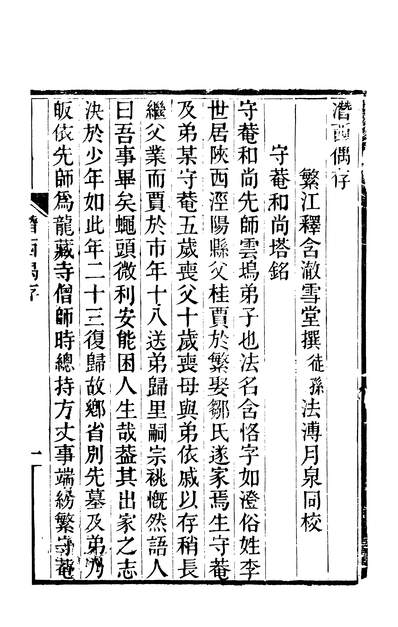 潛西偶存
繁江釋含澈雪堂撰 徒孫 法溥月泉同校
守菴和尚塔銘
守菴和尚先師雲塢弟子也法名含恪字如澄俗姓李
世居陝西涇陽縣父桂賈於繁娶鄒氏遂家焉生守菴
及弟某守菴五歲喪父十歲喪母與弟依戚以存稍長
繼父業而賈於市年十八送弟歸里嗣宗祧慨然語人
曰吾事畢矣蠅頭微利安能困人生哉葢其出家之志
決於少年如此年二十三復歸故鄉省別先墓及弟乃
皈依先師爲龍藏寺僧師時總持方丈事端紛繁守菴
潛西偶存
一